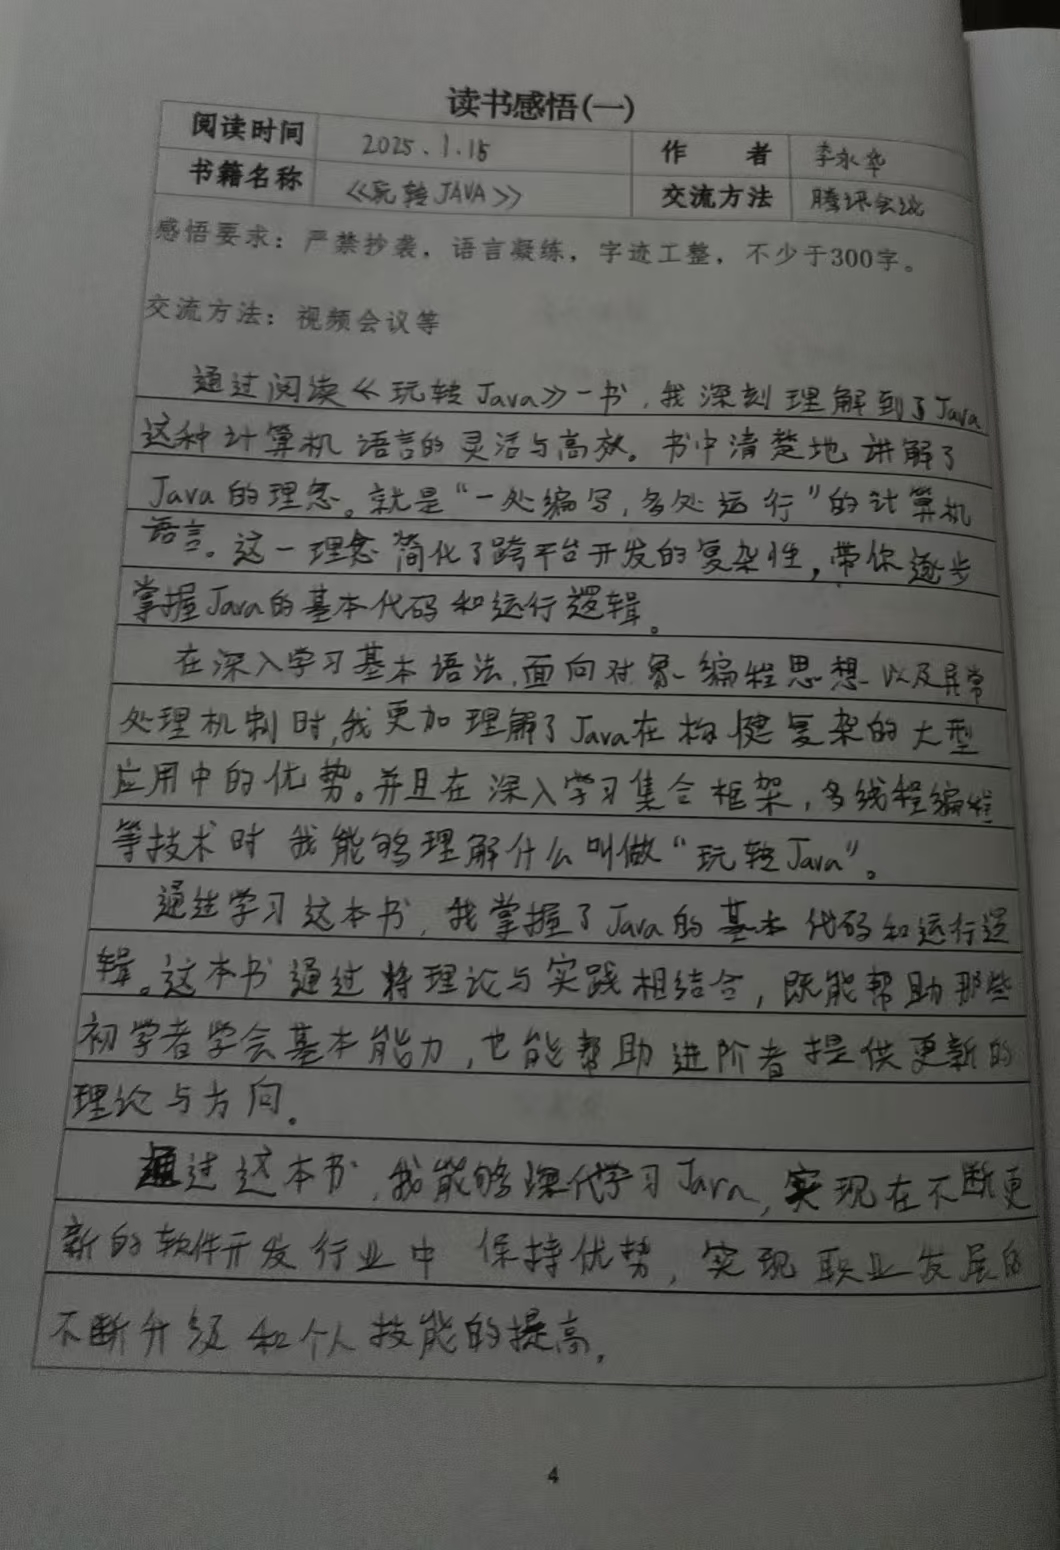 读书感悟(一)
阅读时间 2025.1.15 作 者 李永华
书籍名称 《玩转JAVA》 交流方法 腾讯会议
感悟要求：严禁抄袭，语言凝练，字迹工整，不少于300字。
交流方法：视频会议等
通过阅读《玩转Java》一书，我深刻理解到了Java
这种计算机语言的灵活与高效。书中清楚地讲解了
Java的理念。就是“一处编写，多处运行”的计算机
语言。这一理念简化了跨平台开发的复杂性，带你逐步
掌握Java的基本代码和运行逻辑。
在深入学习基本语法，面向对象编程思想以及异常
处理机制时，我更加理解了Java在构健复杂的大型
应用中的优势。并且在深入学习集合框架，多线程编程
等技术时 我能够理解什么叫做“玩转Java”。
通过学习这本书，我掌握了Java的基本代码和运行逻
辑。这本书通过将理论与实践相结合，既能帮助那些
初学者学会基本能力，也能帮助进阶者提供更新的
理论与方向。
通过这本书，我能够学习Java，实现在不断更
新的软件开发行业中保持优势，实现职业发展的
不断升级和个人技能的提高。
4